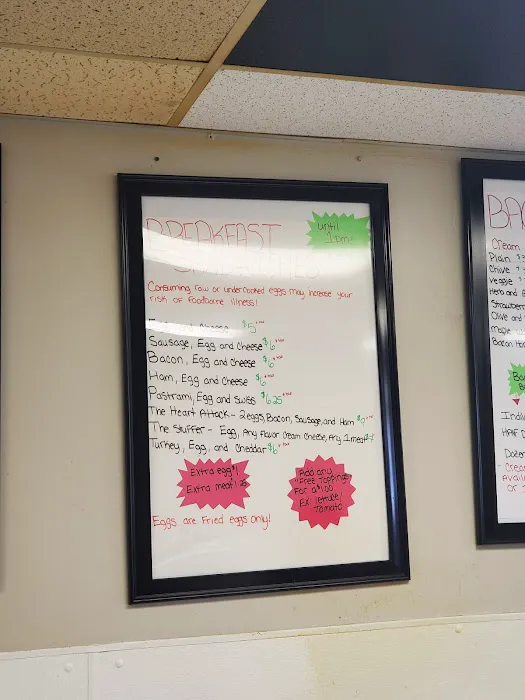 BREAKFAST
until
1pm
Consuming raw or undercooked eggs may increase your
risk of foodborne illness!
$5 +tax
Sausage, Egg and Cheese $6 +tax
Bacon, Egg and Cheese $6 +tax
Ham, Egg and Cheese $6 +tax
Pastrami, Egg and Swiss $6.25 +tax
The Heart Attack - 2 eggs, Bacon, Sausage, and Ham $9 +tax
The Stuffer - Egg, Any Flavor Cream Cheese, Any 1 meat
Turkey, Egg, and Cheddar $6 +tax
Extra egg $1
Extra meat
Add any
"Free Toppings"
For a $1.00
Ex: lettuce/
Tomato
Eggs are Fried eggs only!
BA
Cream
Plain
Chive
Veggie
Herb and
Strawberr
Olive and
Maple
Bacon Hor
Indiv
Half D
Dozen
- Crea
Avail
or